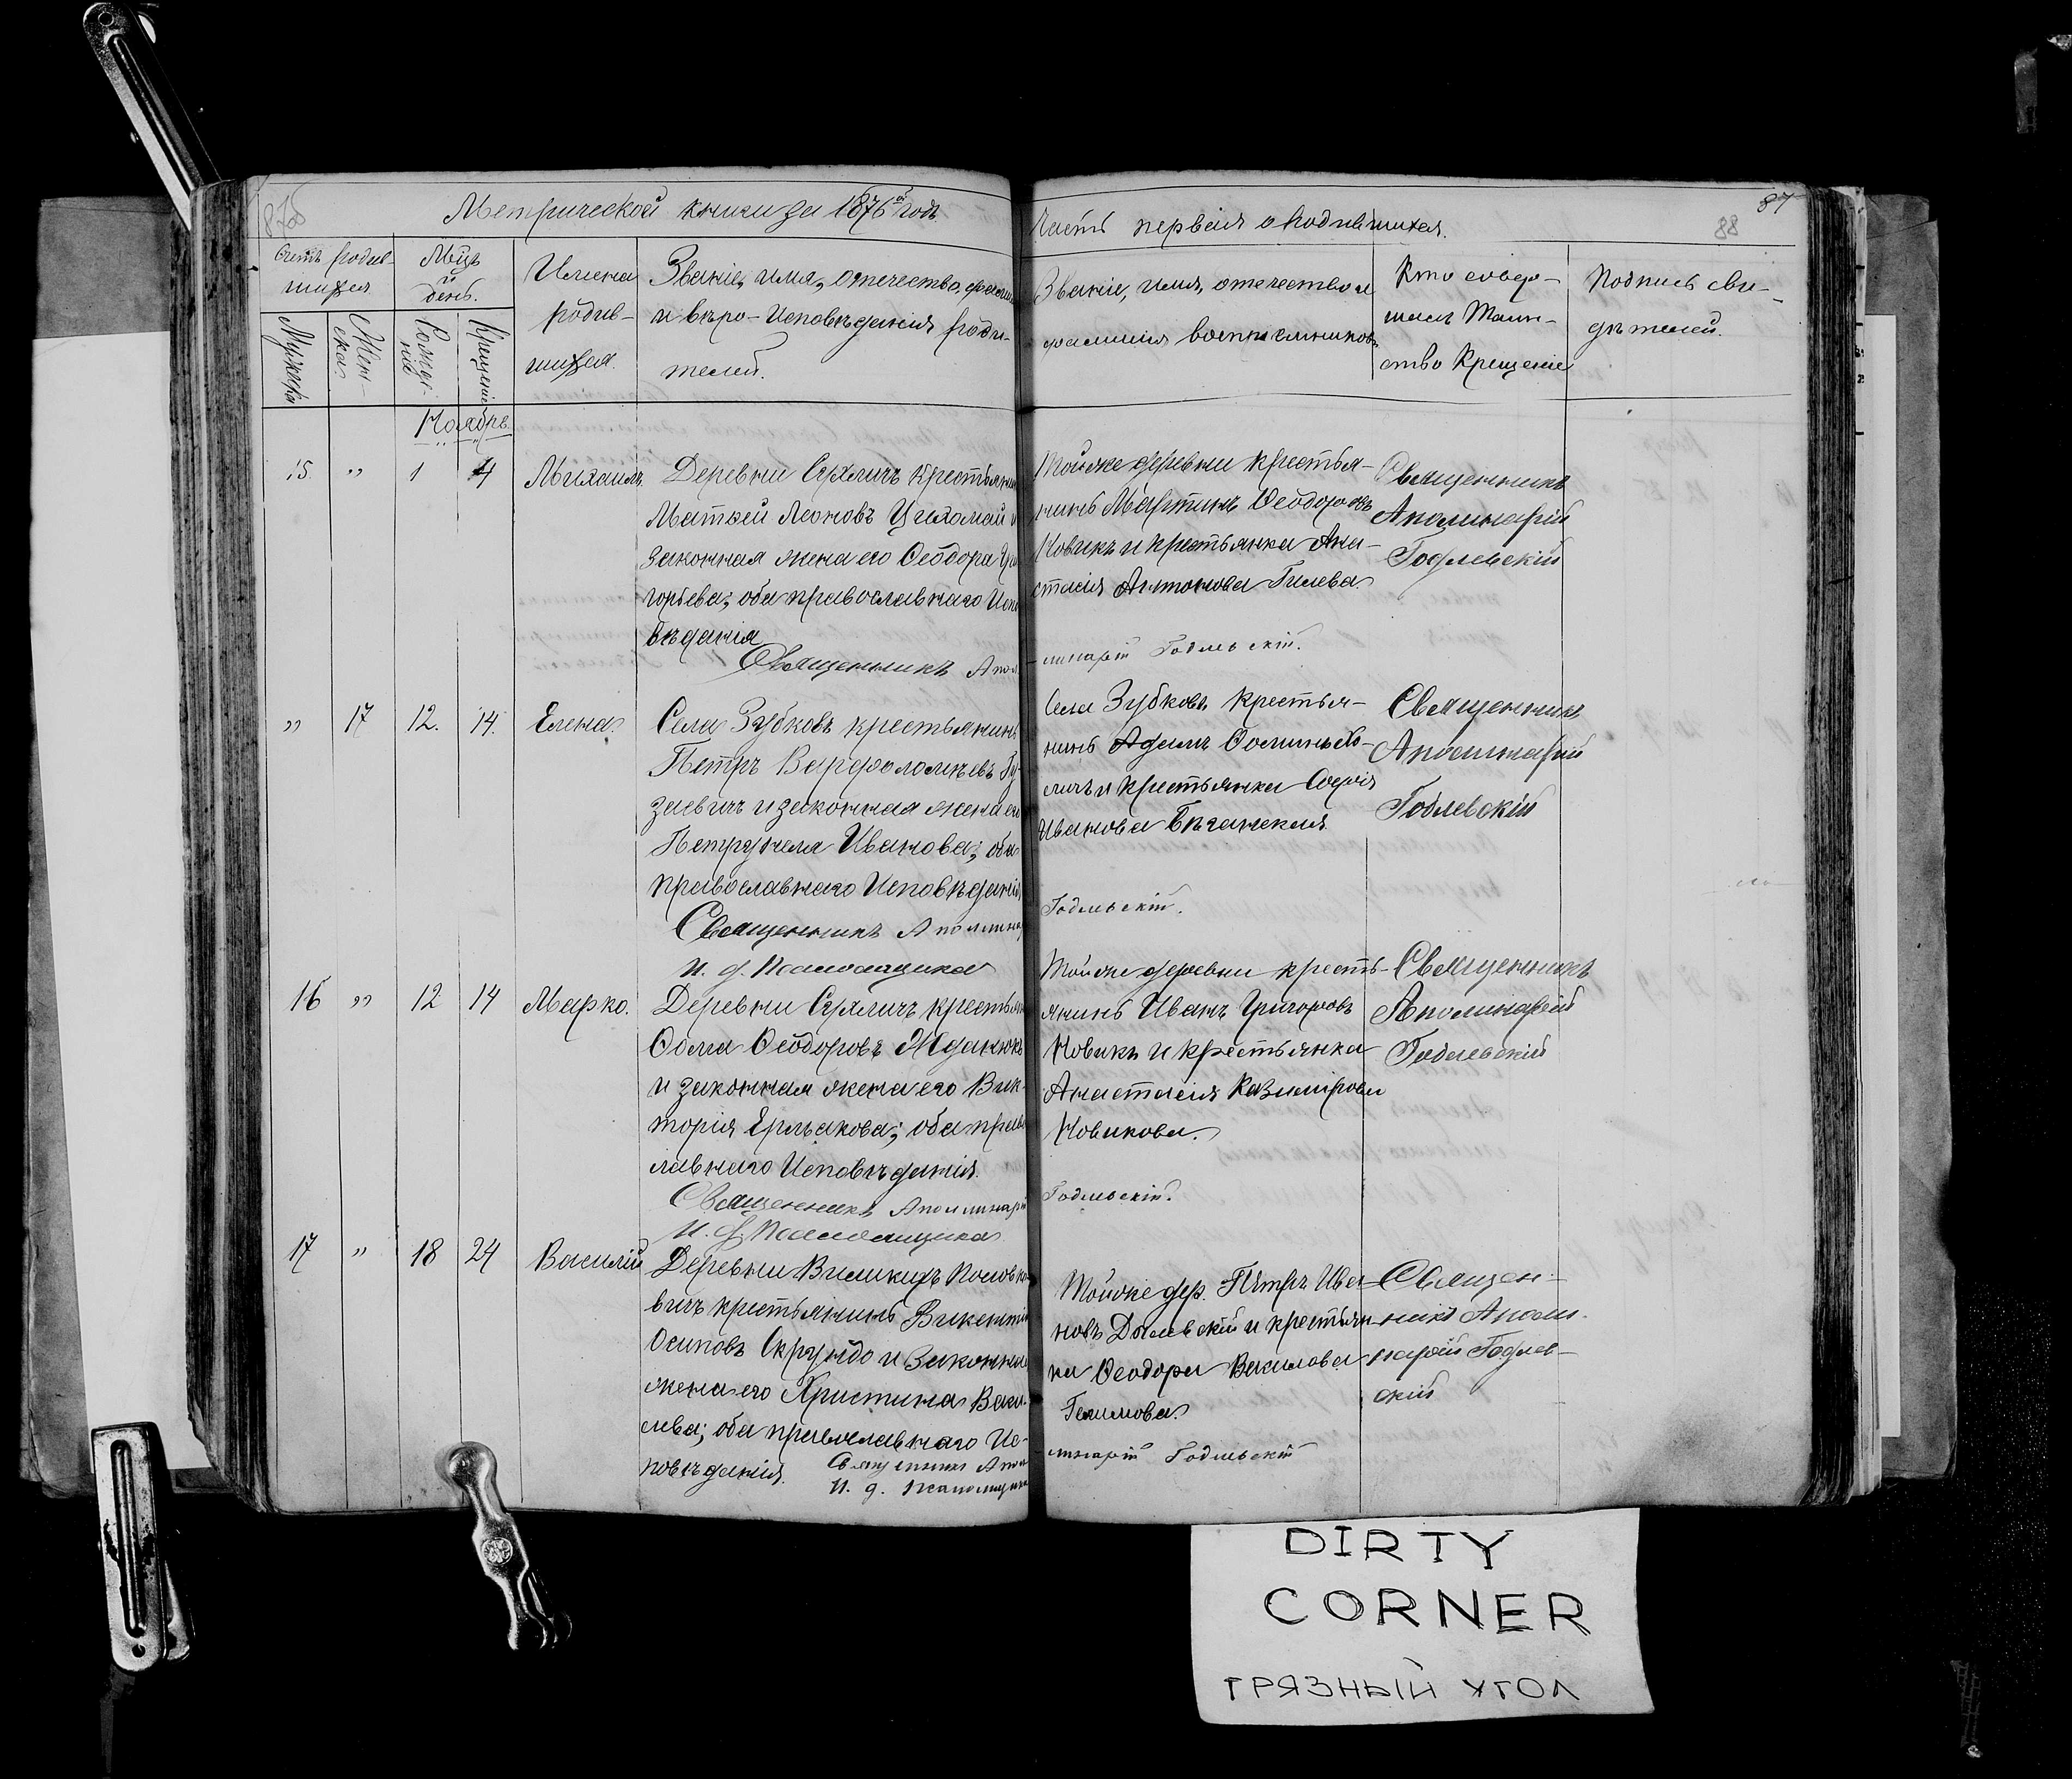 Метрической книги за 1876й годъ
Часть первая о родившихся.
87
88
Счетъ родив-
шихся.
Мужеска
Жен-
ска
Мѣць
и
день.
Рожде-
нія
Крещенія
Имена
родив-
шихся.
Званіе, имя, отечество, фамилія
и вѣро-Исповѣданія роди-
телей.
Званіе, имя, отечество и
фамилія воспріемниковъ
Кто совер-
шилъ Таин-
ство Крещенія
Подпись сви-
дѣтелей.
Ноябрь
15. " 1 4 Михаилъ.
Деревни Сухличъ крестьянинъ
Матѳей Леоновъ и
законная жена его Ѳеодора
горьева; оба православнаго Испо
вѣданія
Священникъ Апол
Тойже деревни крестья-
нинъ Мартинъ Ѳеодоровъ
Новикъ и крестьянка Ана-
стасія Антонова Гилева.
линарій Годлевскій.
Священникъ
Аполинарій
Годлевскій
" 17 12. 14. Елена.
Села Зубковъ крестьянинъ
Петръ Варфоломѣевъ Гу-
заевичъ и законная жена его
Петрунела Иванова; оба
православнаго Исповѣданія
Священникъ Аполлинар
И. д. Псаломщика
Села Зубковъ крестья-
нинъ Адамъ
и крестьянка Софія
Иванова Бѣганская.
Годлевскій.
Священникъ
Аполинарій
Годлевскій
16 " 12 14 Марко.
Деревни Сухличъ крестьян
Ѳома Ѳеодоровъ Жданюкъ
и законная жена его Вик-
торія Ермакова; оба право
лавнаго Исповѣданія.
Священникъ Аполлинарій
И. д. Псаломщика
Тойже деревни кресть-
янинъ Иванъ Григоровъ
Новикъ и крестьянка
Анастасія Казимірова
Новикова.
Годлевскій.
Священникъ
Аполинарій
Годлевскій
17 " 18 24 Василій
Деревни Великихъ
вичъ крестьянинъ Викентій
Осиповъ Скрундо и законная
жена его Христина Васи-
лева; оба православнаго Ис-
повѣданія.
Священникъ Апол
И. д. Псаломщика
Тойже дер. Петръ Ива
новъ Далевскій и крестьян
ка Ѳеодора Василова
линарій Годлевскій
Священ-
никъ Аполи-
нарій Годлев-
скій
DIRTY
CORNER
ГРЯЗНЫЙ УГОЛ